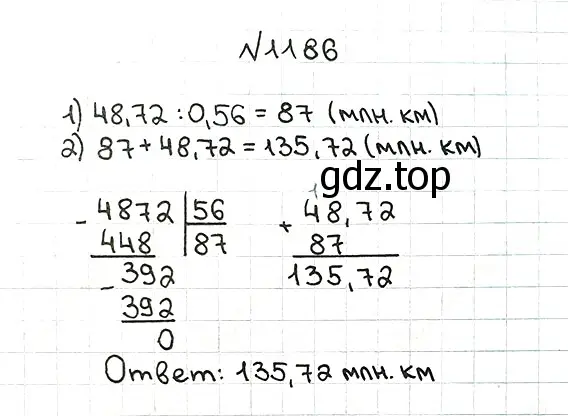 №1186
1) 48,72 : 0,56 = 87 (млн. км)
2) 87 + 48,72 = 135,72 (млн. км)
gdz.top
- 4872 | 56
448 | 87
- 392
392
0
1
+ 48,72
87
135,72
Ответ: 135,72 млн. км